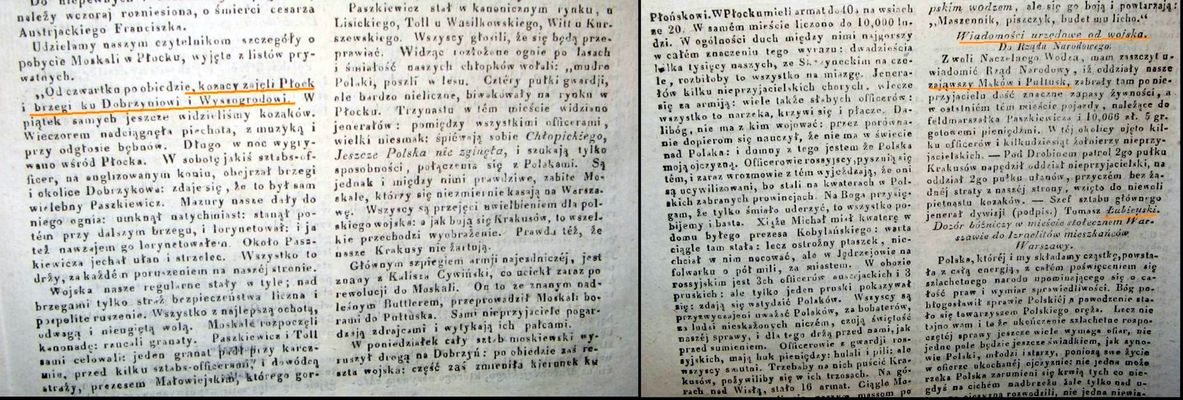 wczoraj rozniesiona, o śmierci cesarza
Austrjackiego Franciszka.
Udzielamy naszym czytelnikom szczegóły o
pobycie Moskali w Płocku, wyjęte z listów pry-
watnych.
„Od czwartku po obiedzie, kozacy zajęli Płock
i brzegi ku Dobrzyniowi i Wyszogrodowi. W
piątek samych jeszcze widzieliśmy kozaków.
Wieczorem nadciągnęła piechota, z muzyką i
przy odgłosie bębnów. Długo w noc wygry-
wano wśród Płocka. W sobotę jakiś sztabs-of-
ficer, na anglizowanym koniu, obejrzał brzegi
i okolice Dobrzykowa: zdaje się, że to był sam
wielebny Paszkiewicz. Mazury nasze dały do
niego ognia: umknął natychmiast: stanął po-
tém przy dalszym brzegu, i lorynetował: i ja
też nawzajem go lorynetowałem. Około Pasz-
kiewicza jechał ułan i strzelec. Wszystko to
drży, za każdém poruszeniem na naszéj stronie.
Wojska nasze regularne stały w tyle; nad
brzegami tylko straż bezpieczeństwa liczna i
pospolite ruszenie. Wszystko z najlepszą ochotą,
odwagą i nieugiętą wolą. Moskale rozpoczęli
kanonadę: rzucali granaty. Paszkiewicz i Toll
sami celowali: jeden granat padł przy karcz-
mie, przed kilku sztabs-officerami, i dowódzcą
straży, prezesem Małowiejskim, którego gorą
Paszkiewicz stał w kanonicznym rynku, u
Lisickiego, Toll u Wasilkowskiego, Witt u Kur-
szewskiego. Wszyscy głosili, że się będą prze-
prawiać. Widząc rozłożone ognie po lasach
i śmiałość naszych chłopków wołali: „mudre
Polaki, poszli w lesu. Cztéry pułki gwardji,
ale bardzo nieliczne, biwakowały na rynku w
Płocku. Trzynastu w tém mieście widziano
jenerałów: pomiędzy wszystkimi officerami,
wielki niesmak: śpiéwają sobie Chłopickiego,
Jeszcze Polska nie zginęła, i szukają tylko
sposobności, połączenia się z Polakami. Są
jednak i między nimi prawdziwe, zabite Mo-
skale, którzy się niezmiernie kasają na Warsza-
wę. Wszyscy są przejęci uwielbieniem dla pol-
skiego wojska: a jak boją się Krakusów, to wszel-
kie przechodzi wyobrażenie. Prawda też, że
nasze Krakusy nie żartują.
Głównym szpiegiem armji najezdniczéj, jest
znany z Kalisza Cywiński, co uciekł zaraz po
rewolucji do Moskali. On to ze znanym nad-
leśnym Buttlerem, przeprowadził Moskali bo-
rami do Pułtuska. Sami nieprzyjaciele pogar-
dzają zdrajcami i wytykają ich palcami.
W poniedziałek cały sztab moskiewski wy-
ruszył drogą na Dobrzyń: po obiedzie zaś re-
szta wojska: część zaś zmieniła kierunek ku
Płońskowi. W Płocku mieli armat do 40; a na wsiach
ze 20. W samém mieście liczono do 10,000 lu-
dzi. W ogólności duch między nimi najgorszy
w całém znaczeniu tego wyrazu: dwadzieścia
kilka tysięcy naszych, ze Skrzyneckim na cze-
le, rozbiłoby to wszystko na miazgę. Jenera-
łów kilku nieprzyjaznych chorych: wlecze
się za armiją: wiele także słabych officerów:
wszystko to narzeka, krzywi się i płacze. Da-
libóg, nie ma z kim wojować: przez porówna-
nie dopierom się nauczył, że nie ma w świecie
nad Polaka: i dumny z tego jestem że Polska
moją ojczyzną. Officerowie rossyjscy, pysznią się
tém, i zaraz w rozmowie z tém wyjeżdżają, że oni
są ucywilizowani, bo stali na kwaterach w Pol-
skich zabranych prowincjach. Na Boga przysię-
gam, że tylko śmiało uderzyć, to wszystko po-
bijemy i basta. Xiąże Michał miał kwaterę w
domu byłego prezesa Kobylańskiego: warta
ciągle tam stała: lecz ostrożny ptaszek, nie-
chciał w nim nocować, ale w Jędrzejowie na
folwarku o pół mili, za miastem. W obozie
rossyjskim jest 3ch officerów angielskich i 3
pruskich: ale tylko jeden pruski pokazywał
się; zdają się wstydzić Polaków. Wszyscy są
przyzwyczajeni uważać Polaków, za bohaterów,
za ludzi nieskażonych niczém, czują świętość
naszéj sprawy, i dla tego drżą przed nami, jak
przed sumieniem. Officerowie z gwardji ros-
syjskich, mają huk pieniędzy: hulali i pili: ale
wszyscy smutni. Trzebaby na nich puścić Kra-
kusów, pożywiliby się w ich trzosach. Na gó-
rach nad Wisłą, stało 16 armat. Ciągle Mo-
pskim wodzem, ale się go boją i powtarzają:
„Maszennik, piszczyk, budet mu licho."
Wiadomości urzędowe od wojska.
Do Rządu Narodowego.
Z woli Naczelnego Wodza, mam zaszczyt u-
wiadomić Rząd Narodowy, iż oddziały nasze
zająwszy Maków i Pułtusk, zabrały tam po nie-
przyjacielu dość znaczne zapasy żywności, a
w ostatniém téż mieście pojazdy, należące do
feldmarszałka Paszkiewicza i 10,066 zł. 5 gr.
gotowemi pieniędzmi. W téj okolicy ujęto kil-
ku officerów i kilkudziesiąt żołnierzy nieprzy-
jacielskich. — Pod Drobinem patrol 2go pułku
Krakusów napędł oddział nieprzyjacielski, na
oddział 2go pułku ułanów, przyczém bez ża-
dnéj straty z naszéj strony, wzięto do niewoli
piętnastu kozaków. — Szef sztabu głównego
jenerał dywizji (podpis.) Tomasz Łubieński.
Dozór bóżniczy w mieście stołeczném War-
szawie do Izraelitów mieszkańców
Warszawy.
Polska, któréj i my składamy cząstkę, powsta-
ła z całą energją, z całém poświęceniem się
szlachetnego narodu upominającego się o ca-
łość praw i wymiar sprawiedliwości. Bóg po-
błogosławił sprawie Polskiéj a powodzenie sta-
ło się towarzyszem Polskiego oręża. Lecz nie
tajno wam i to że ukończenie szlachetne rozpo-
częté sprawy jeszcze wiele wymaga ofiar, nie
jedne pole będzie jeszcze świadkiem, jak syno-
wie Polski, młodzi i starzy, poniosą swe życie
w ofierze ukochanéj ojczyźnie: nie jedna może
rzeka Polska zarumieni się krwią tych co nie-
gdyś na cichém nadbrzeżu żale tylko nad u-